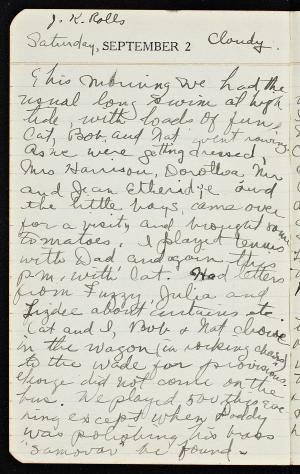 J. K. Rolls
Saturday, SEPTEMBER 2 Cloudy.
This morning we had the
usual long swim at high
tide, with loads of fun.
Cat, Bob and Nat went rowing.
As we were getting dressed,
Mrs Harrison, Dorothea, Mr
and Jean Etheridge and
the little boys came over
for a visit, and brought some
tomatoes. I played tennis
with Dad and again this
p.m. with Cat. Had letters
from Fuzzy, Julia and
Lizdee about curtains etc.
Cat and I, Bob & Nat drove
in the wagon (in rocking chairs)
to the wade for provisions.
George did not come on the
bus. We played 500 this eve
ning except when Daddy
was polishing his brass
"Samovar" he found.